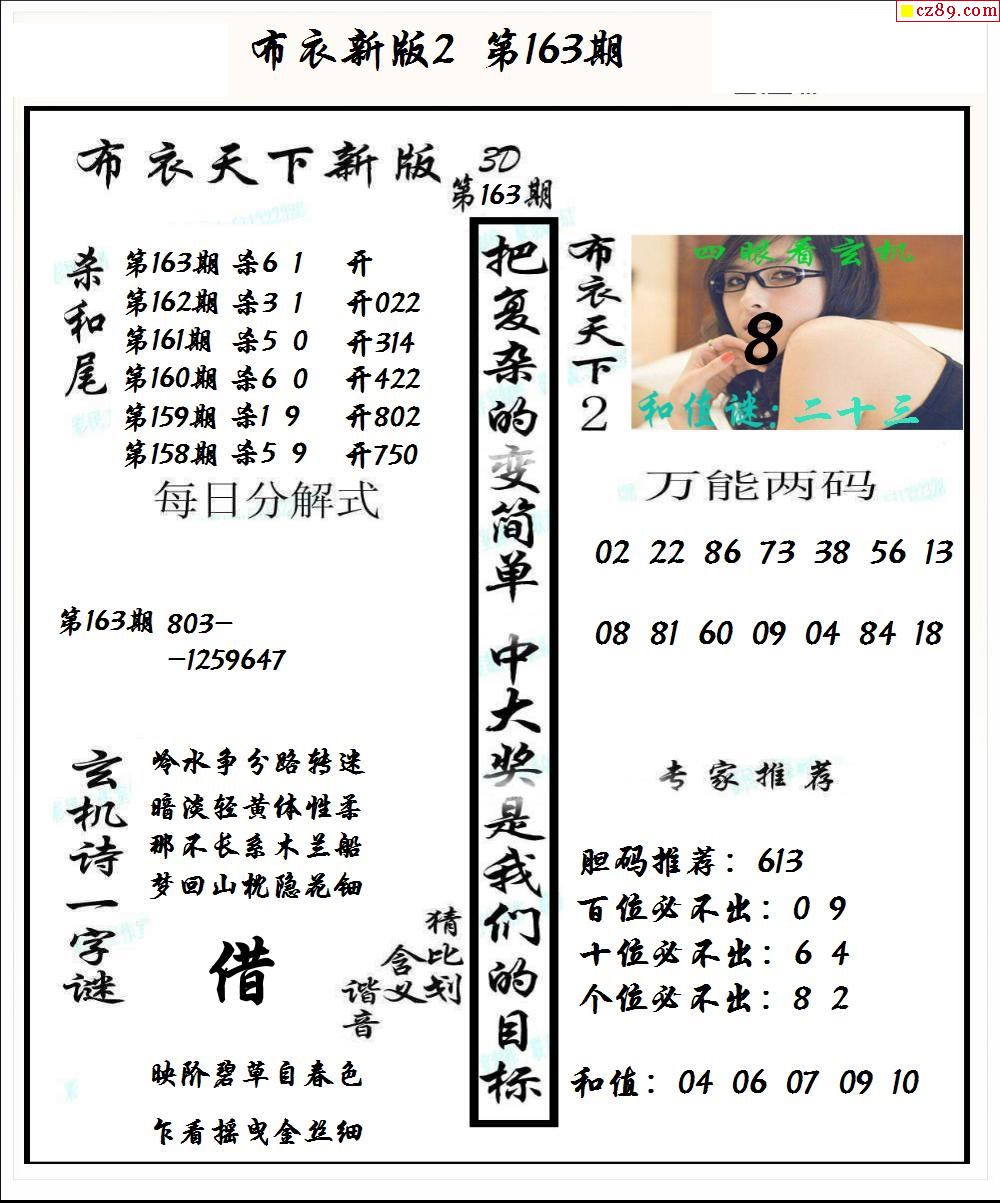 cz89.com
布衣新版2 第163期
布衣天下新版 3D
第163期
杀和尾
第163期 杀6 1 开
第162期 杀3 1 开022
第161期 杀5 0 开314
第160期 杀6 0 开422
第159期 杀1 9 开802
第158期 杀5 9 开750
每日分解式
第163期 803-
-1259647
玄机诗一字谜
冷水争分路转迷
暗淡轻黄体性柔
那不长系木兰船
梦回山枕隐花钿
借
猜比划
含义
谐音
映阶碧草自春色
乍看摇曳金丝细
把复杂的变简单 中大奖是我们的目标
布衣天下2
四眼看玄机
8
和值谜:二十三
万能两码
02 22 86 73 38 56 13
08 81 60 09 04 84 18
专家推荐
胆码推荐：613
百位必不出：0 9
十位必不出：6 4
个位必不出：8 2
和值：04 06 07 09 10